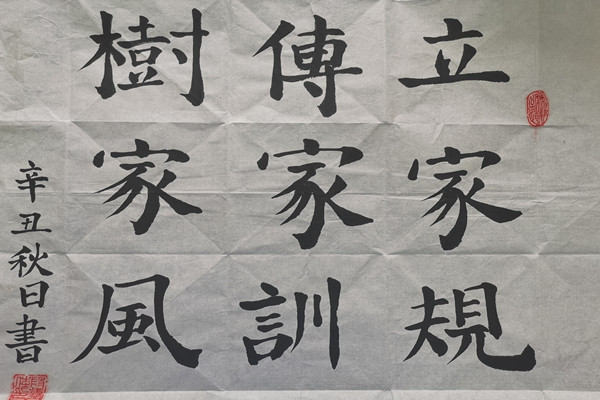 立家規
傳家訓
樹家風
辛丑秋日書